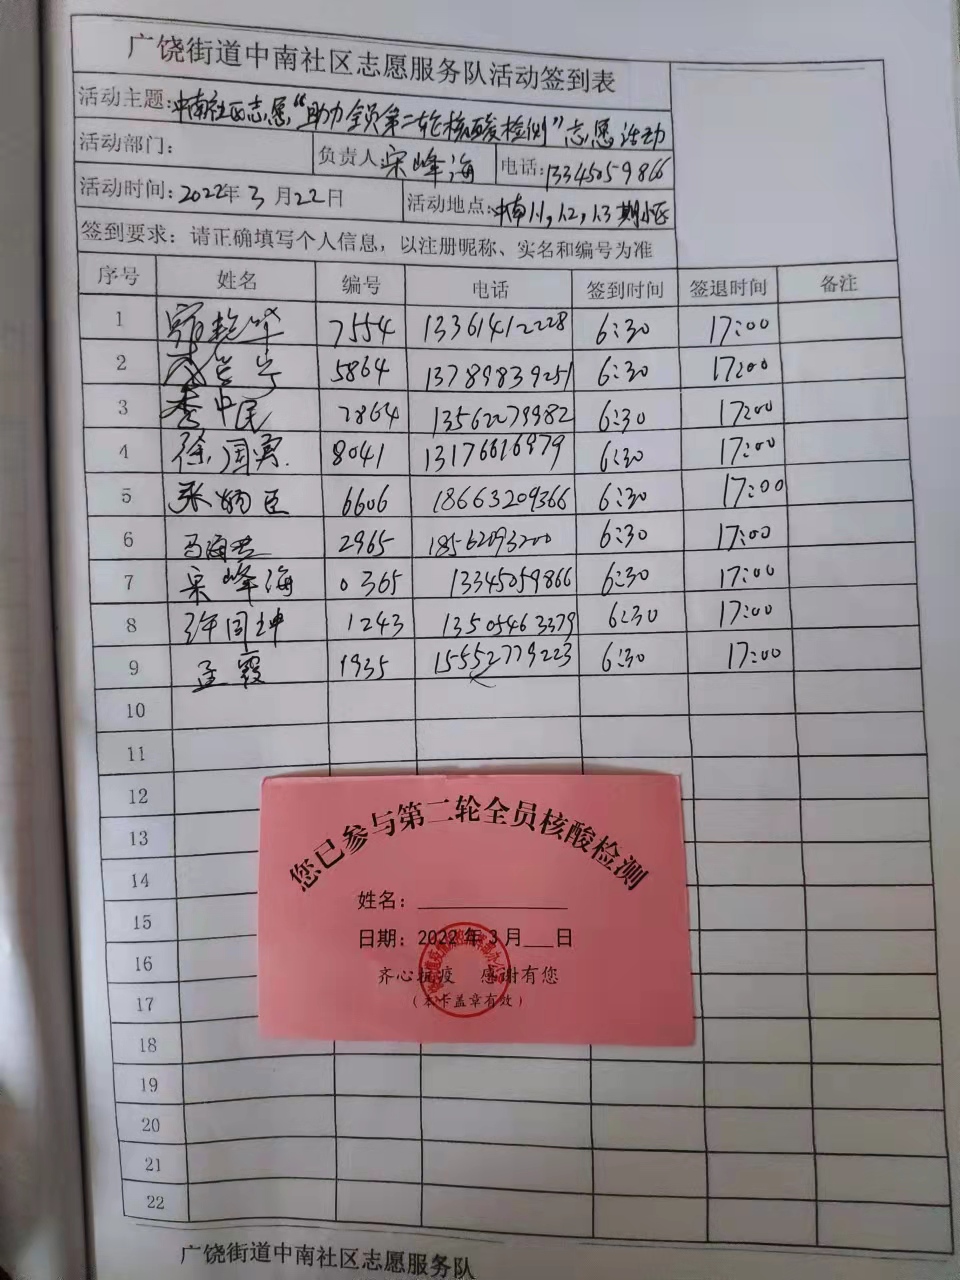 广饶街道中南社区志愿服务队活动签到表
活动主题:中南社区志愿“助力全员第二轮核酸检测”志愿活动
活动部门: 负责人 宋峰海 电话:13345059866
活动时间:2022年3月22日 活动地点:中南1.1,1.2,1.3期小区
签到要求:请正确填写个人信息,以注册昵称、实名和编号为准
序号 姓名 编号 电话 签到时间 签退时间 备注
1 7554 13361412228 6:30 17:00
2 5864 13789839251 6:30 17:00
3 李中民 7864 13562079982 6:30 17:00
4 徐国勇 8041 13176616979 6:30 17:00
5 张 臣 6606 18663209366 6:30 17:00
6 马海 2965 18562093200 6:30 17:00
7 宋峰海 0365 13345059866 6:30 17:00
8 许国坤 1243 13505463379 6:30 17:00
9 孟霞 1935 15552779223 6:30 17:00
10
11
12
13
14
15
16
17
18
19
20
21
22
您已参与第二轮全员核酸检测
姓名:
日期:2022年3月 日
齐心抗疫 感谢有您
(本卡盖章有效)
广饶街道中南社区志愿服务队